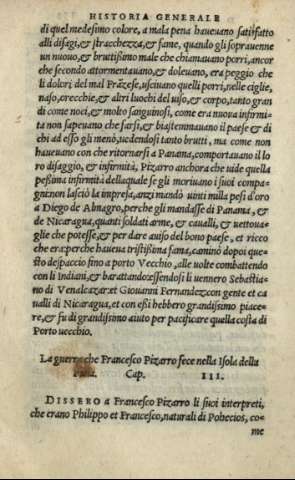 HISTORIA GENERALE
di quel medesimo colore, a mala pena haueuano satisfatto
alli disagi, & stracchezza, & fame, quando gli soprauenne
un nuouo, & bruttissimo male che chiamauano porri, ancor
che secondo attormentauano, & doleuano, era peggio che
li dolori del mal Frāzese, usciuano quelli porri, nelle ciglie,
naso, orecchie, & altri luochi del uiso, & corpo, tanto gran
di come noci, & molto sanguinosi, come era nuoua infirmi-
ta non sapeuano che farsi, & biastemmauano il paese & di
chi ad esso gli menò, uedendosi tanto brutti, ma come non
haueuano con che ritornarsi a Panama, comportauano il lo
ro disaggio, & infirmità, Pizarro anchora che uide quella
pessima infirmità dellaquale se gli moriuano i suoi compa-
gni: non lasciò la impresa, anzi mandò uinti milla pesi d'oro
a Diego de Almagro, perche gli mandasse di Panamà, &
de Nicaragua, quanti soldati arme, & caualli, & uettoua-
glie che potesse, & per dare auiso del bono paese, et ricco
che era: perche haueua tristissima fama, caminò dopoi que-
sto despaccio sino a porto Vecchio, alle uolte combattendo
con li Indiani, & barattando: essendosi li uennero Sebastia-
no di Venalcazar: et Giouanni Fernandez: con gente et ca
ualli di Nicaragua, et con essi hebbero grandissimo piace-
re, & fu di grandissimo aiuto per pacificare quella costa di
Porto uecchio.
La guerra che Francesco Pizarro fece nella Isola della
Cap. III.
DISSERO a Francesco Pizarro li suoi interpreti,
che erano Philippo et Francesco, naturali di Pohecios, co-
me